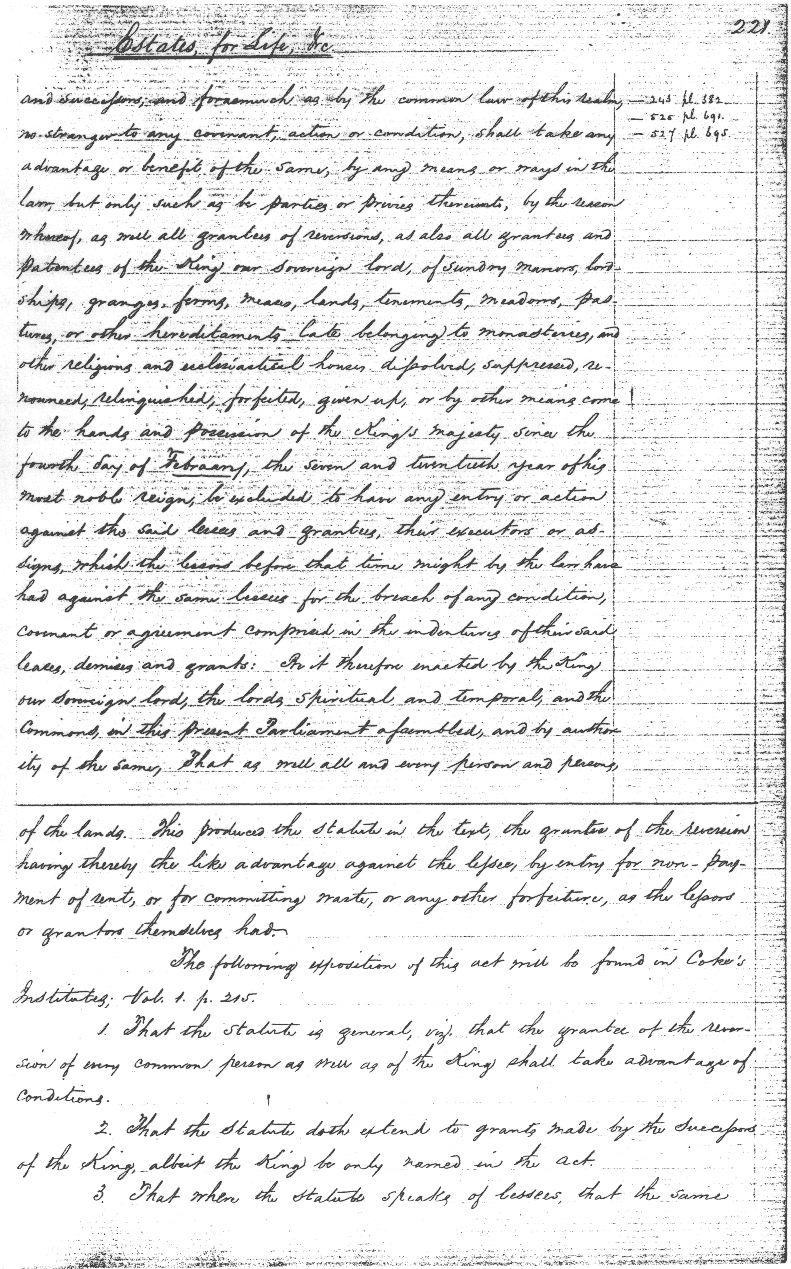 221.
Estates, for Life, &c
and successors; and forasmuch as by the common law of this realm,
— 243 pl. 382
no stranger to any covenant, action or condition, shall take any
— 525 pl. 691.
— 527 pl. 695.
advantage or benefit of the same, by any means or ways in the
law, but only such as be parties or privies thereunto, by the reason
whereof, as well all grantees of reversions, as also all grantees and
Patentees of the King our sovereign lord, of sundry manors, lord-
ships, granges, ferms, meases, lands, tenements, meadows, pas-
tures, or other hereditaments late belonging to monasteries, and
other religious and ecclesiastical houses dissolved, suppressed, re-
nounced, relinquished, forfeited, given up, or by other means come
to the hands and possession of the King's majesty since the
fourth day of February, the seven and twentieth year of his
most noble reign, be excluded to have any entry or action
against the said lessees and grantees, their executors or as-
signs, which the lessors before that time might by the law have
had against the same lessees for the breach of any condition,
covenant or agreement comprised in the indentures of their said
leases, demises and grants: Be it therefore enacted by the King
our sovereign lord, the lords spiritual and temporal, and the
Commons, in this present Parliament assembled, and by author-
ity of the same, That as well all and every person and persons,
of the lands. This produced the statute in the text, the grantee of the reversion
having thereby the like advantage against the lessee, by entry for non-pay-
ment of rent, or for committing waste, or any other forfeiture, as the lessors
or grantors themselves had.
The following exposition of this act will be found in Coke's
Institutes; Vol. 1. p. 215.
1. That the statute is general, viz. that the grantee of the rever-
sion of every common person as well as of the King shall take advantage of
conditions.
2. That the statute doth extend to grants made by the successors
of the King, albeit the King be only named in the act.
3. That when the statute speaks of lessees, that the same